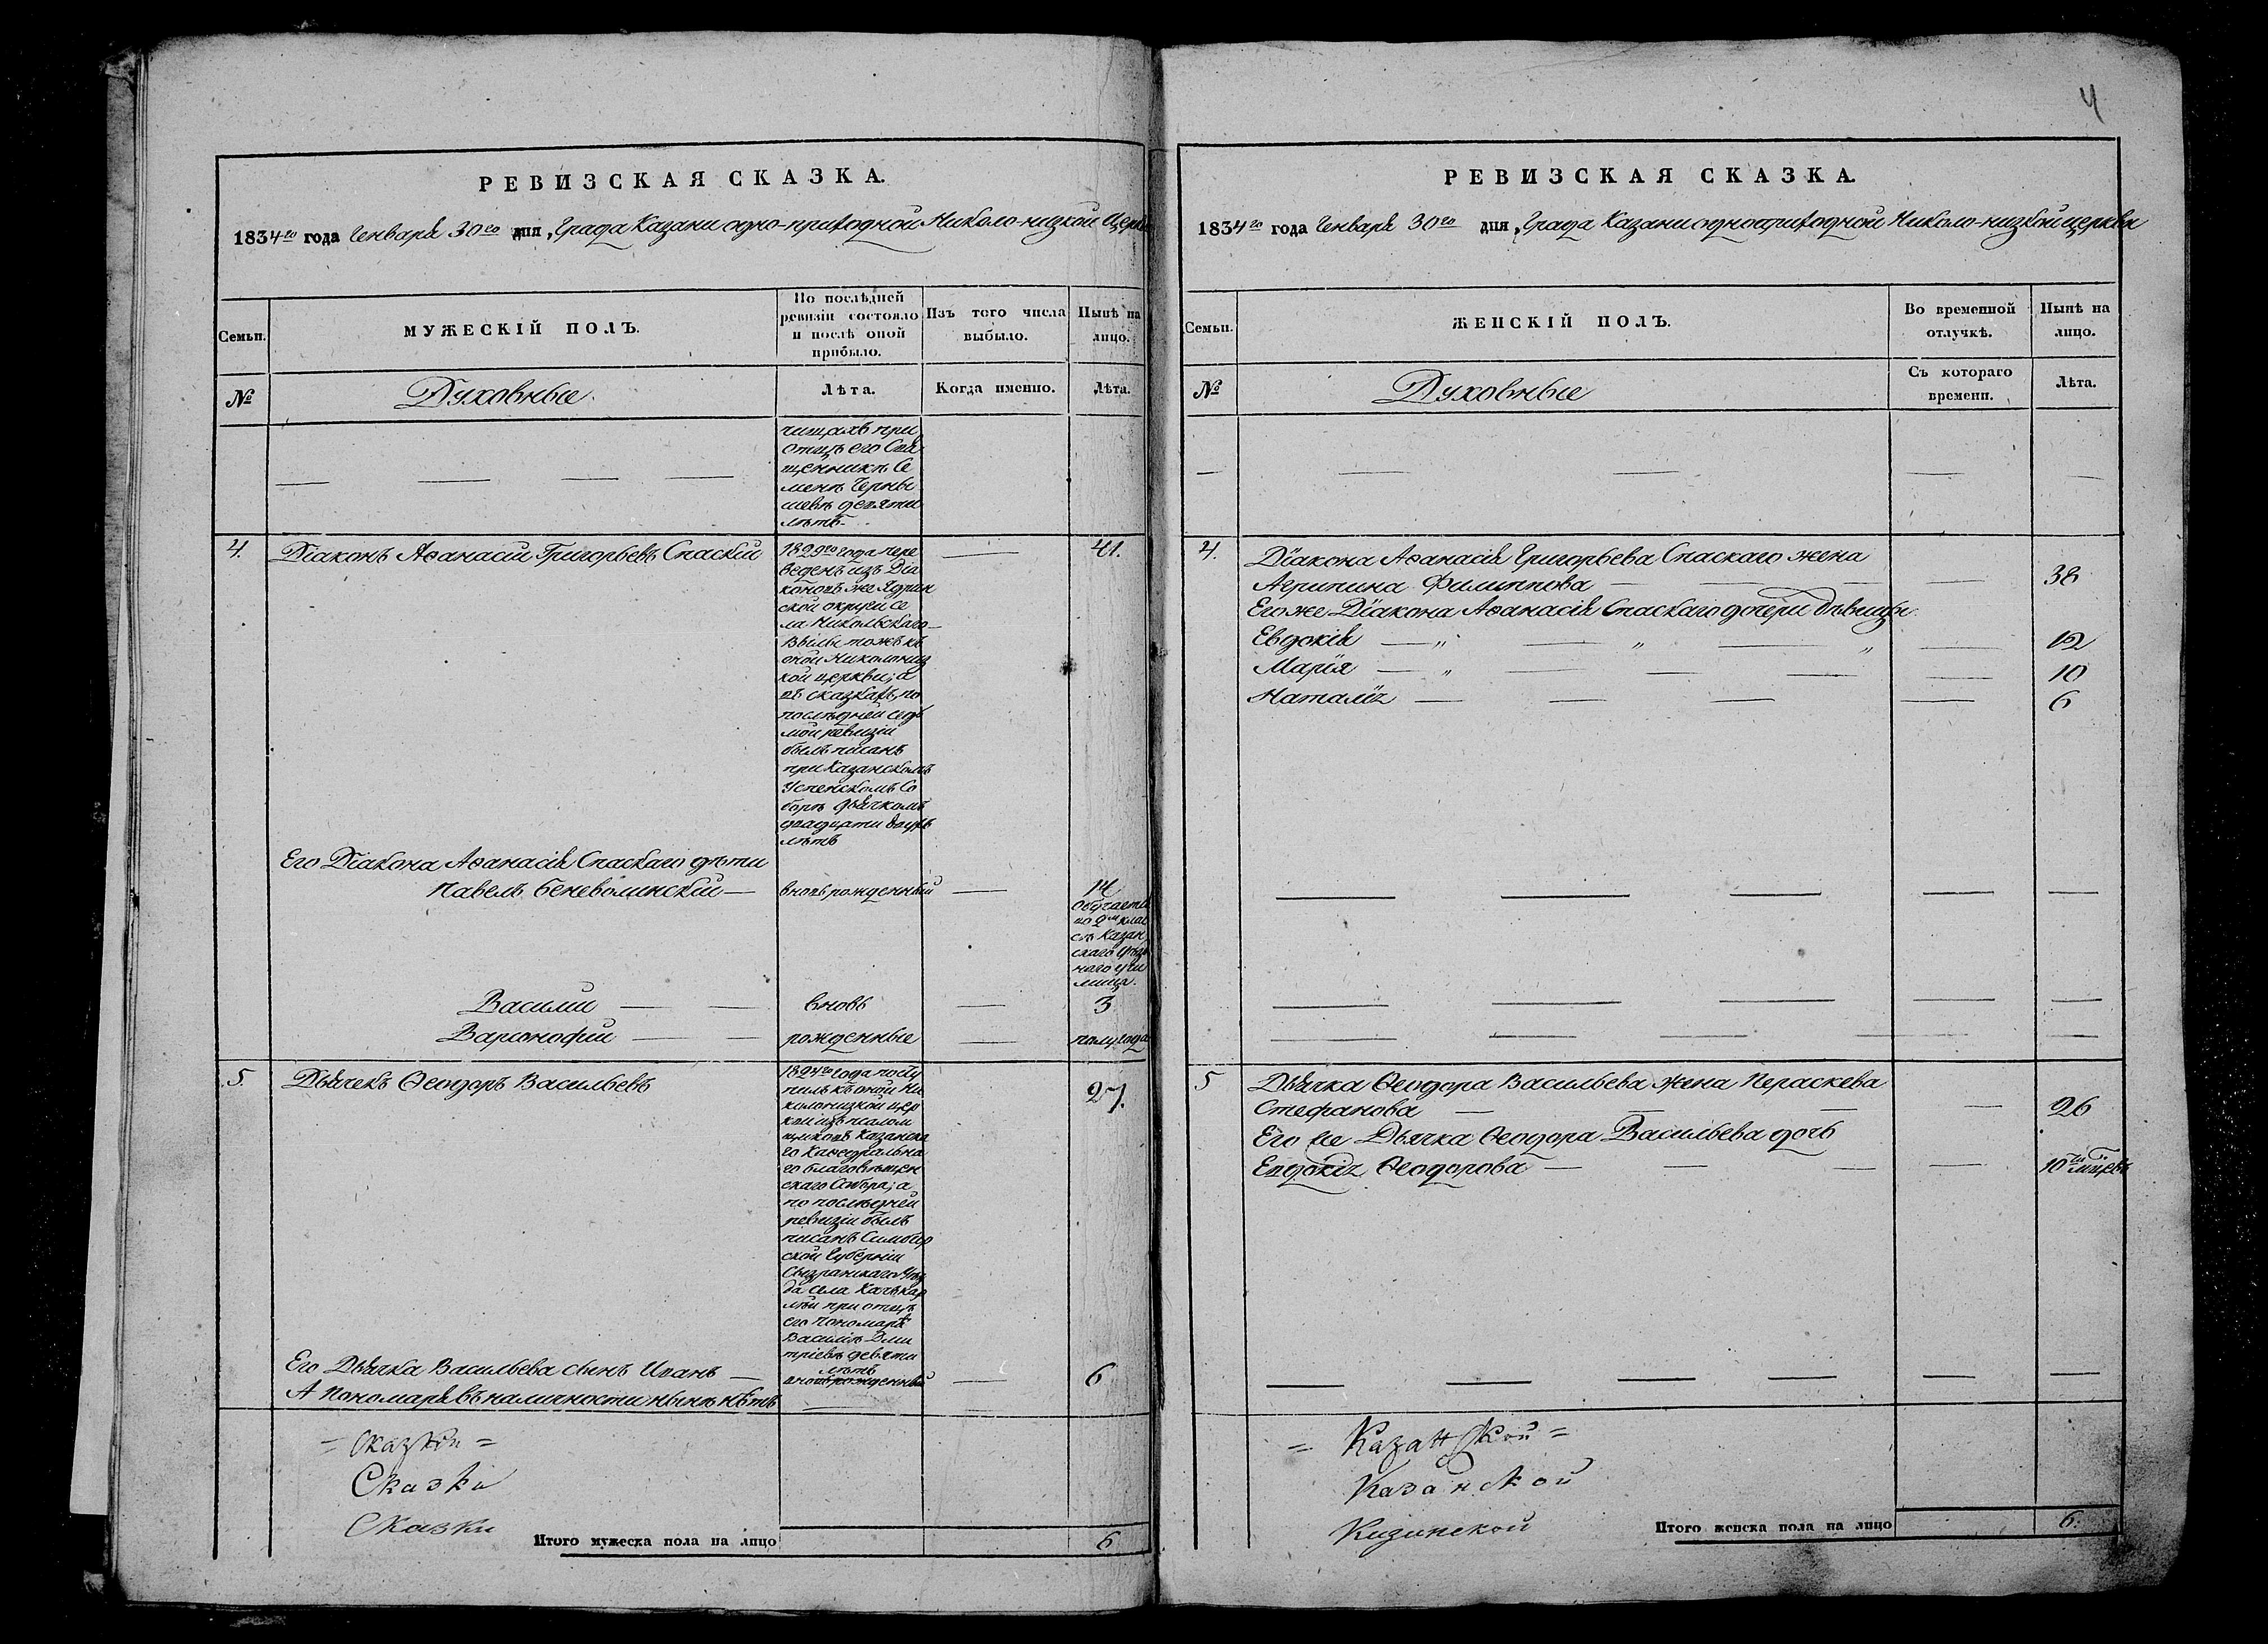 РЕВИЗСКАЯ СКАЗКА.
1834го года Генваря 30го дня, Града Казани одно-приходной Николо-низкой Церкви
Семьи.
МУЖЕСКІЙ ПОЛЪ.
По послѣдней ревизіи состояло и послѣ оной прибыло.
Изъ того числа выбыло.
Нынѣ на лицо.
№
Духовные
Лѣта.
Когда именно.
Лѣта.
при
отцѣ его Свя
щенникѣ Се
менѣ Черны
шевѣ девяти
лѣтъ.
4.
Діаконъ Аѳанасій Григорьевъ Спаскій
41.
1829го года пере
веденъ изъ Діа
коновъ же Ядрин
ской округи се
ла Никольскаго
тожъ къ
оной Николониз
кой церкви; а
въ сказкахъ по
послѣдней седь
мой ревизіи
былъ писанъ
при Казанскомъ
Успенскомъ Со
борѣ дьячкомъ
двадцати двухъ
лѣтъ
Его Діакона Аѳанасія Спаскаго дѣти
Павелъ Беневолинскій — вновь рожденный — 14
Обучается
во 2м клас
сѣ Казан
скаго уѣзд
наго учи
лища.
Василій — вновь — 3
Варсонофий — рожденные — полугода
5.
Дьячекъ Ѳеодоръ Васильевъ
27.
1824го года посту
пилъ къ оной Ни
колонизкой цер
кви изъ псалом
щиковъ Казанска
го Каѳедральна
го благовѣщен
скаго Собора; а
по послѣдней
ревизіи былъ
писанъ Симбир
ской Губерніи
Сызранскаго уѣз
да села
при отцѣ
его пономарѣ
Василіѣ Дми
тріевѣ девяти
лѣтъ
Его Дьячка Васильева сынъ Иванъ — вновь рожденный — 6
А пономаря въ наличности нынѣ нѣтъ
= Сказки =
Сказки
Сказки
Итого мужеска пола на лицо 6
4
РЕВИЗСКАЯ СКАЗКА.
1834го года Генваря 30го дня, Града Казани одноприходной Николо-низкой церкви
Семьи.
ЖЕНСКІЙ ПОЛЪ.
Во временной отлучкѣ.
Нынѣ на лицо.
№
Духовные
Съ котораго времени.
Лѣта.
4.
Діакона Аѳанасія Григорьева Спаскаго жена
Агрипина Филиппова — 38
Его же Діакона Аѳанасія Спаскаго дочери дѣвицы
Евдокія — 12
Марія — 10
Наталія — 6
5
Дьячка Ѳеодора Васильева жена Пераскева
Стефанова — 26
Его же Дьячка Ѳеодора Васильева дочь
Евдокія Ѳеодорова — 10ти мѣсяцевъ
= Казанской =
Казанской
Казанской
Итого женска пола на лицо 6.